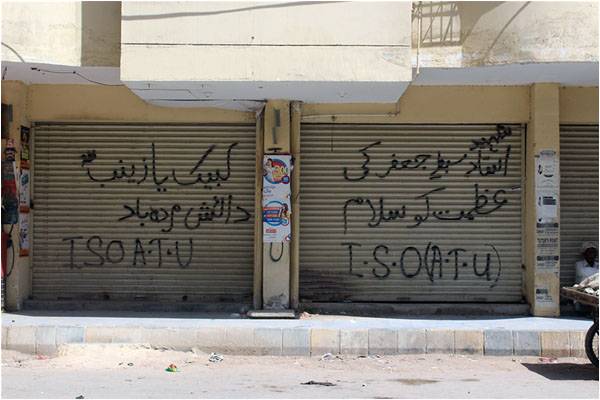 شہید
استاد سبط جعفر کی
عظمت کو سلام
I.S.O(A.T.U)
لبیک یا زینب
داعش مردہ باد
I S O A.T.U